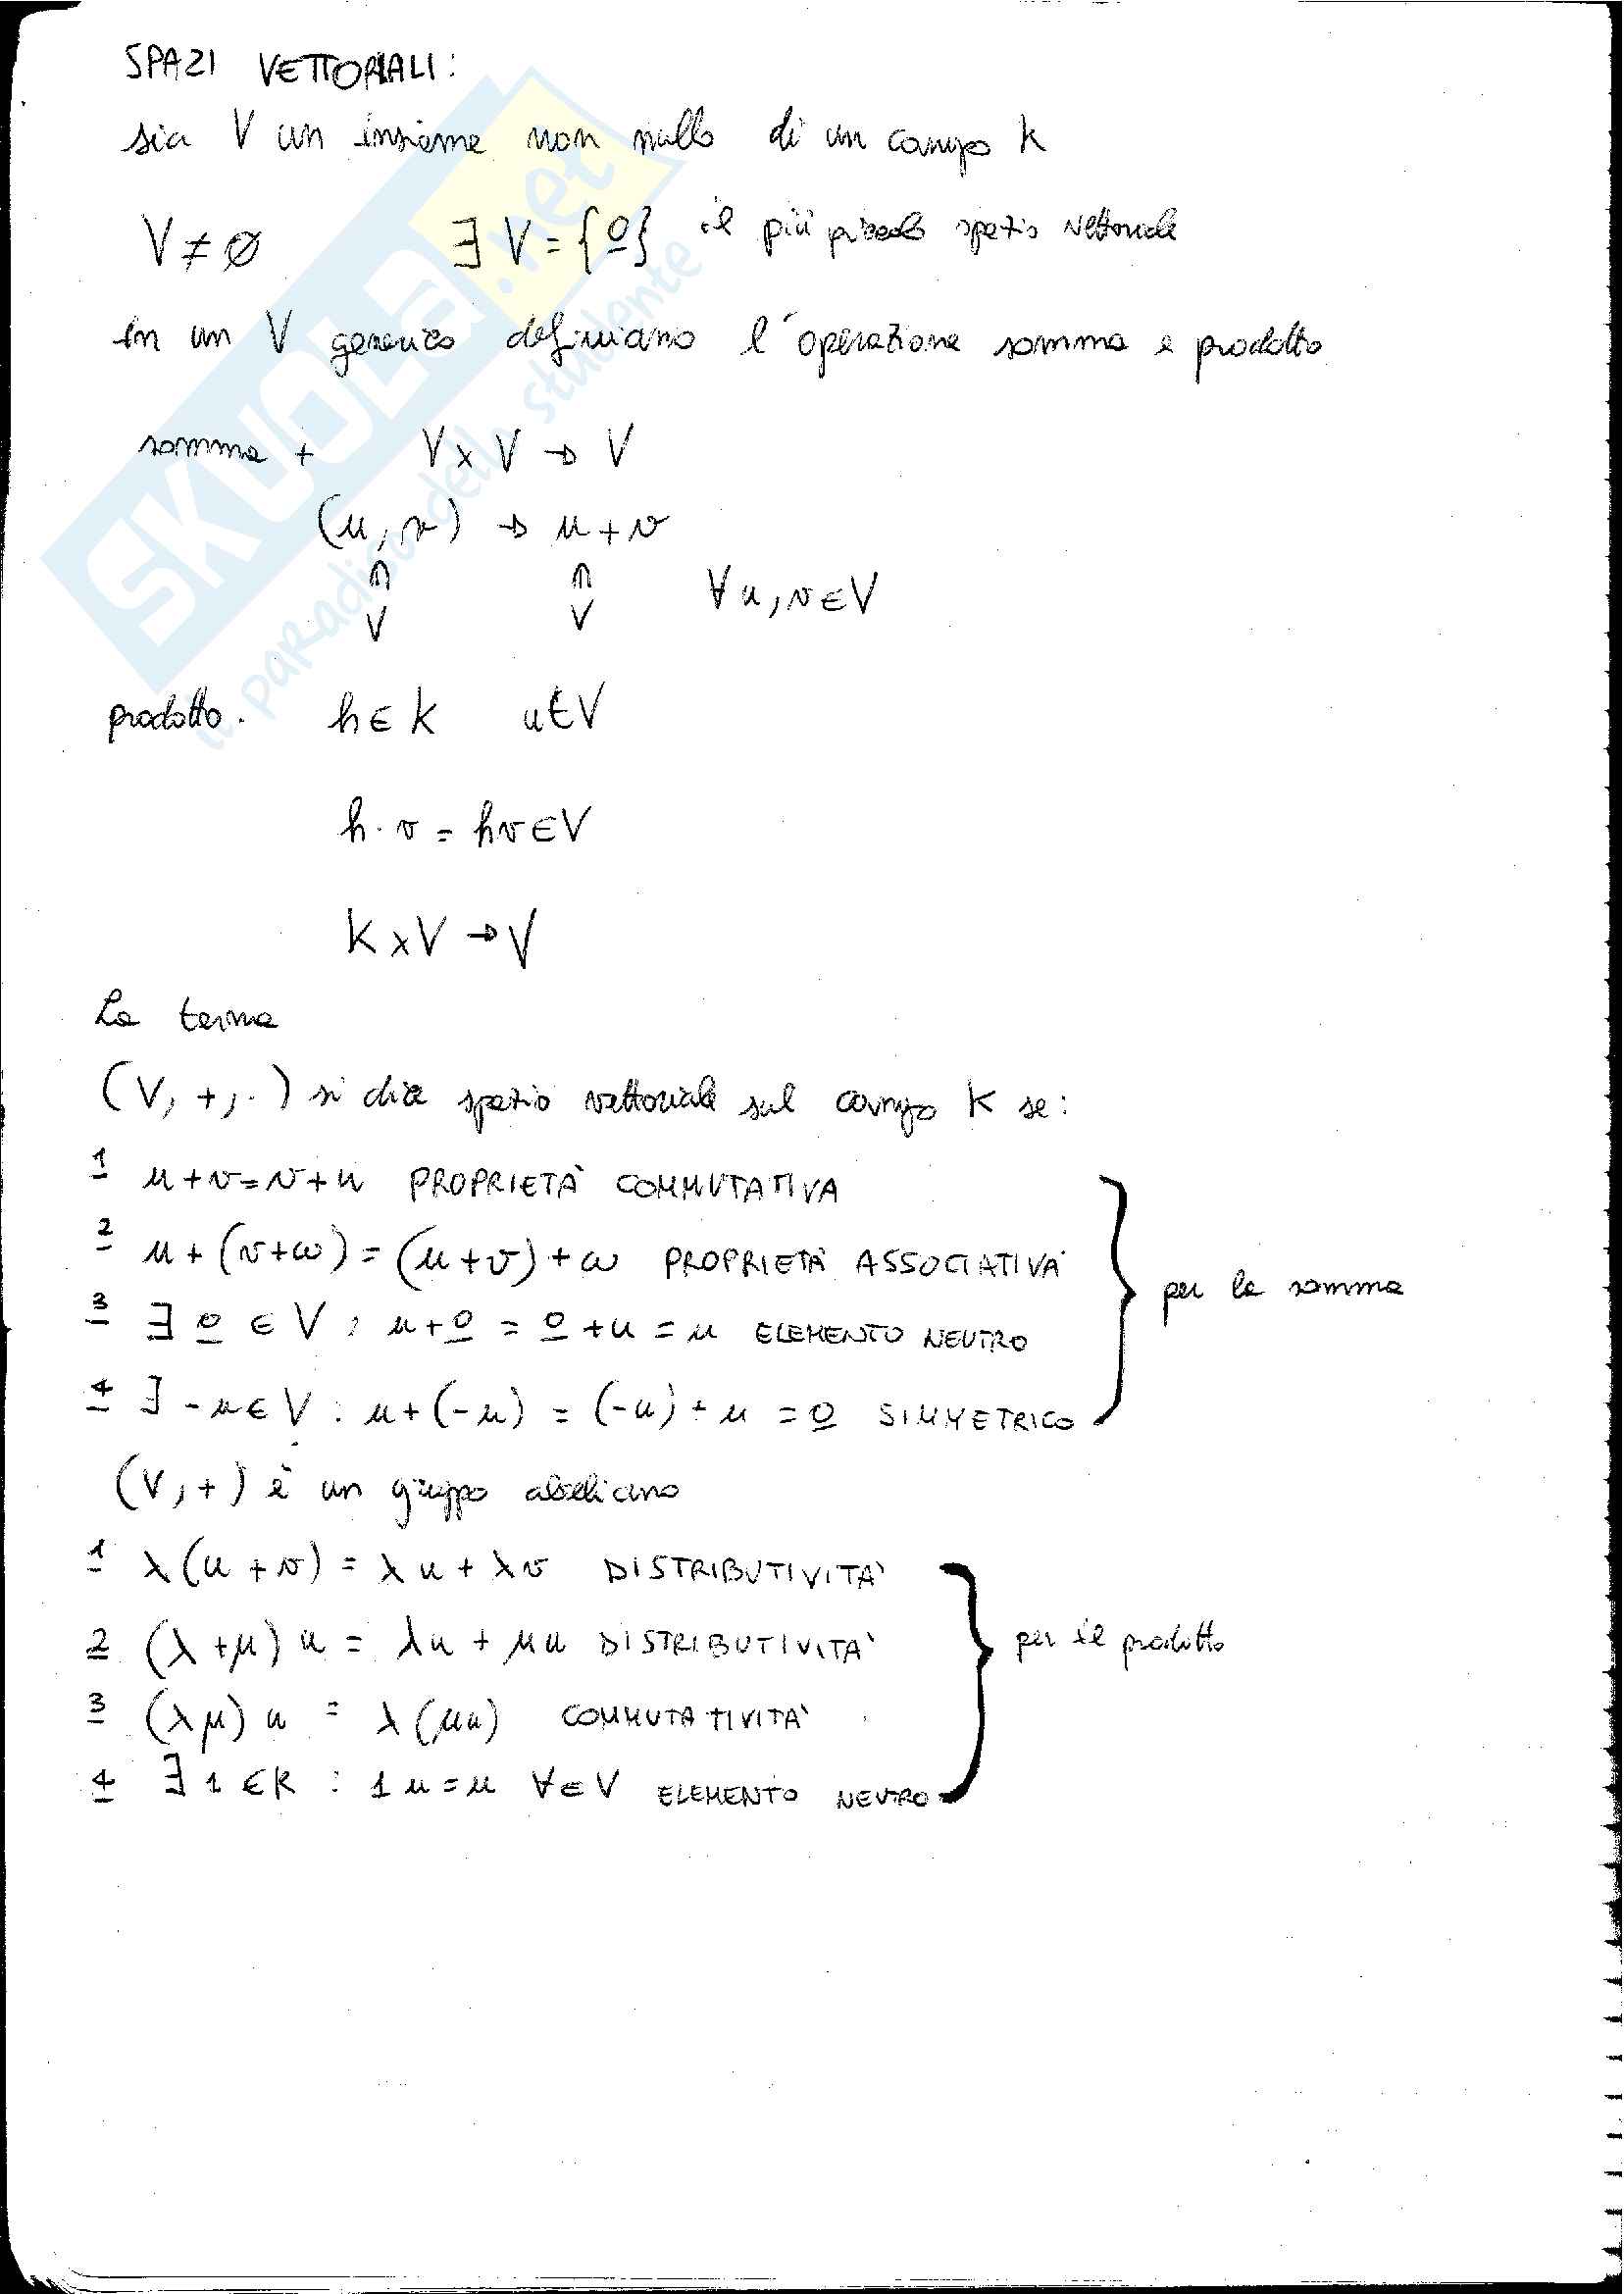 SPAZI VETTORIALI:
sia V un insieme non nullo di un campo K
V ≠ ∅ ∃ V = {0} il più piccolo spazio vettoriale
in un V generico definiamo l'operazione somma e prodotto
somma + V x V → V
(u, v) → u + v
∩ ∩
V V ∀ u, v ∈ V
prodotto · h ∈ K u ∈ V
h · v = hv ∈ V
K x V → V
La terna
(V, +, ·) si dice spazio vettoriale sul campo K se:
1 u + v = v + u PROPRIETÀ COMMUTATIVA
2 u + (v + w) = (u + v) + w PROPRIETÀ ASSOCIATIVA
per la somma
3 ∃ 0 ∈ V : u + 0 = 0 + u = u ELEMENTO NEUTRO
4 ∃ -u ∈ V : u + (-u) = (-u) + u = 0 SIMMETRICO
(V, +) è un gruppo abeliano
1 λ(u + v) = λu + λv DISTRIBUTIVITÀ
2 (λ + μ) u = λu + μu DISTRIBUTIVITÀ
per il prodotto
3 (λμ) u = λ(μu) COMMUTATIVITÀ
4 ∃ 1 ∈ K : 1 u = u ∀ ∈ V ELEMENTO NEUTRO
SKUOLA.net
il paradiso dello studente